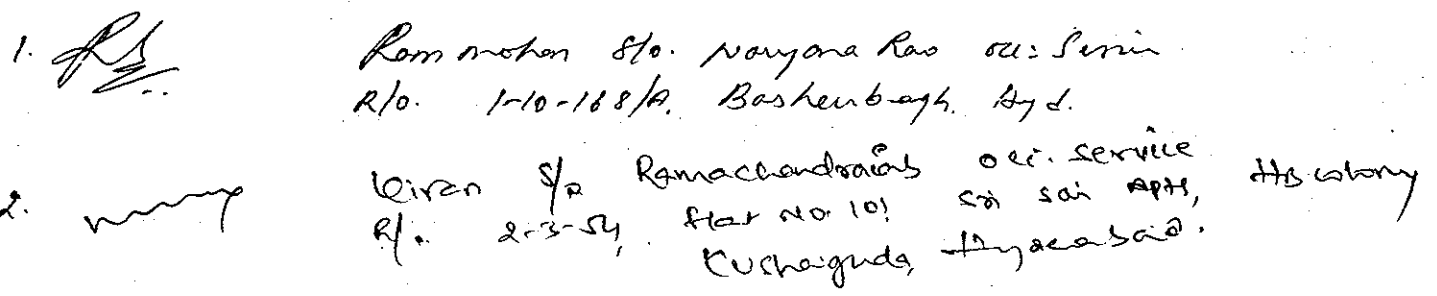 1. Ram mohan S/o. Naryana Rao occ: Servic
R/o. 1-10-168/A, Basheerbagh, Hyd.
2. Kiran S/o Ramachandraiah occ. service
R/o. 2-3-54, flat No. 101 sri sai Apts, HB colony
Kushaiguda, Hyderabad.